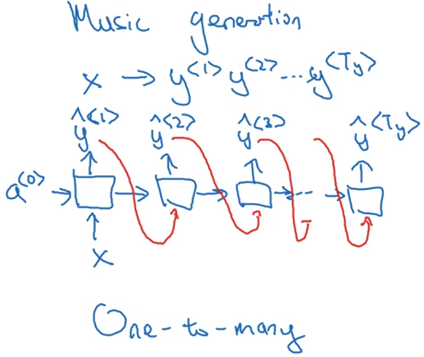 Music generation
x → y<1> y<2> ... y<Ty>
ŷ<1> ŷ<2> ŷ<3> ŷ<Ty>
a<0>
x
One-to-many